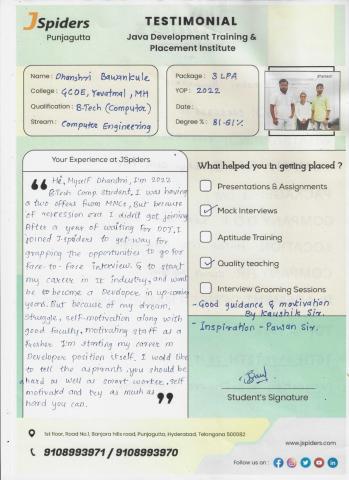 JSpiders
Punjagutta
TESTIMONIAL
Java Development Training &
Placement Institute
Name: Dhanshri Bawankule
College: GCOE, Yavatmal, MH
Qualification: B.Tech (Computer)
Stream: Computer Engineering
Package: 3 LPA
YOP: 2022
Date:
Degree %: 81.61%
Your Experience at JSpiders
Hi, Myself Dhanshri, I'm 2022
B.Tech Comp. Student, I was having
a two offers from MNCs, But because
of recession era I didn't got joining
After a year of waiting for DOJ, I
joined J-spiders to get-way for
grapping the opportunities to go for
Face-to-Face interview. & to start
my career in IT industry, and want
to be to become a Developer in up-coming
years. But because of my dream,
struggle, self-motivation along with
good faculty, motivating staff as a
Fresher I'm starting my career in
Developer position itself. I would like
to tell the aspirants, you should be
hard as well as smart worker, self
motivated and try as much as
hard you can.
What helped you in getting placed ?
Presentations & Assignments
Mock Interviews
Aptitude Training
Quality teaching
Interview Grooming Sessions
- Good guidance & motivation
By Kaushik Sir.
- Inspiration - Pawan Sir.
Student's Signature
1st floor, Road No.1, Banjara hills road, Punjagutta, Hyderabad, Telangana 500082
9108993971 / 9108993970
www.jspiders.com
Follow us on :